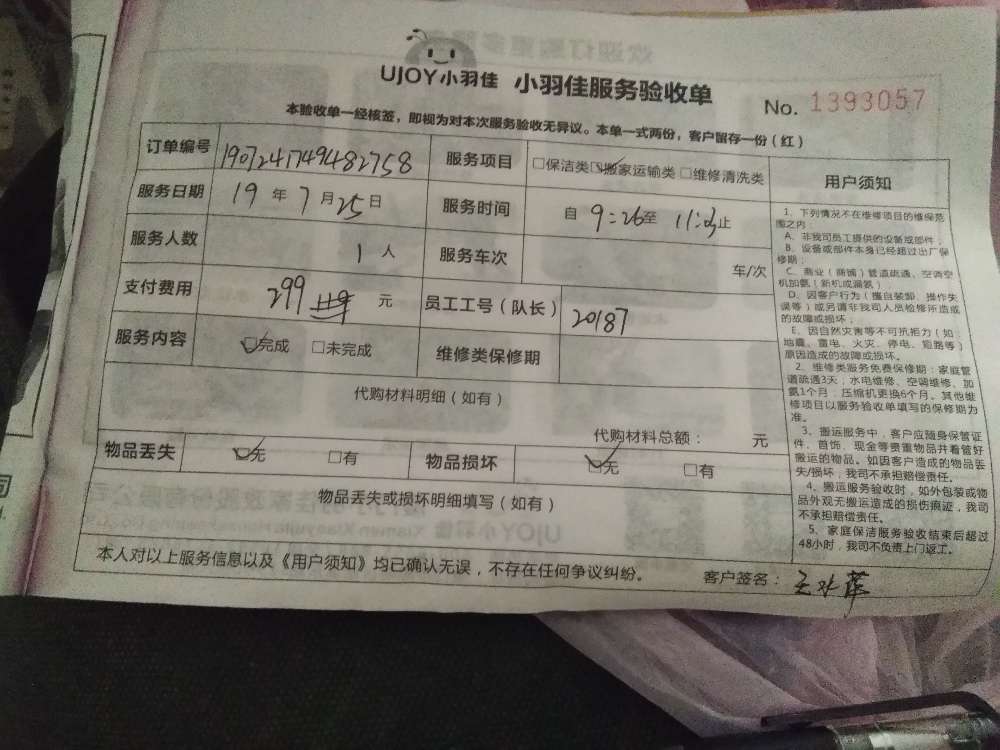 UJOY小羽佳 小羽佳服务验收单
No. 1393057
本验收单一经核签，即视为对本次服务验收无异议。本单一式两份，客户留存一份（红）
订单编号 1907241749482758 服务项目 □保洁类☑搬家运输类□维修清洗类
服务日期 19年7月25日 服务时间 自9:26至11:03止
服务人数 1人 服务车次 车/次
支付费用 299 元 员工工号（队长） 20187
服务内容 ☑完成 □未完成 维修类保修期
代购材料明细（如有）
代购材料总额： 元
物品丢失 ☑无 □有 物品损坏 ☑无 □有
物品丢失或损坏明细填写（如有）
本人对以上服务信息以及《用户须知》均已确认无误，不存在任何争议纠纷。 客户签名：王水萍
用户须知
1、下列情况不在维修项目的维保范
围之内：
A、非我司员工提供的设备或部件；
B、设备或部件本身已经超过出厂保
修期；
C、商业（商铺）管道疏通、空调空
机加氨（新机或漏氨）
D、因客户行为（擅自装卸、操作失
误等）或另请非我司人员检修所造成
的故障或损坏；
E、因自然灾害等不可抗拒力（如：
地震、雷电、火灾、停电、短路等）
原因造成的故障或损坏。
2、维修类服务免费保修期：家庭管
道疏通3天；水电维修、空调维修、加
氨1个月；压缩机更换6个月。其他维
修项目以服务验收单填写的保修期为
准。
3、搬运服务中，客户应随身保管证
件、首饰、现金等贵重物品并看管好
搬运的物品。如因客户造成的物品丢
失/损坏，我司不承担赔偿责任。
4、搬运服务验收时，如外包装或物
品外观无搬运造成的损伤痕迹，我司
不承担赔偿责任。
5、家庭保洁服务验收结束后超过
48小时，我司不负责上门返工。